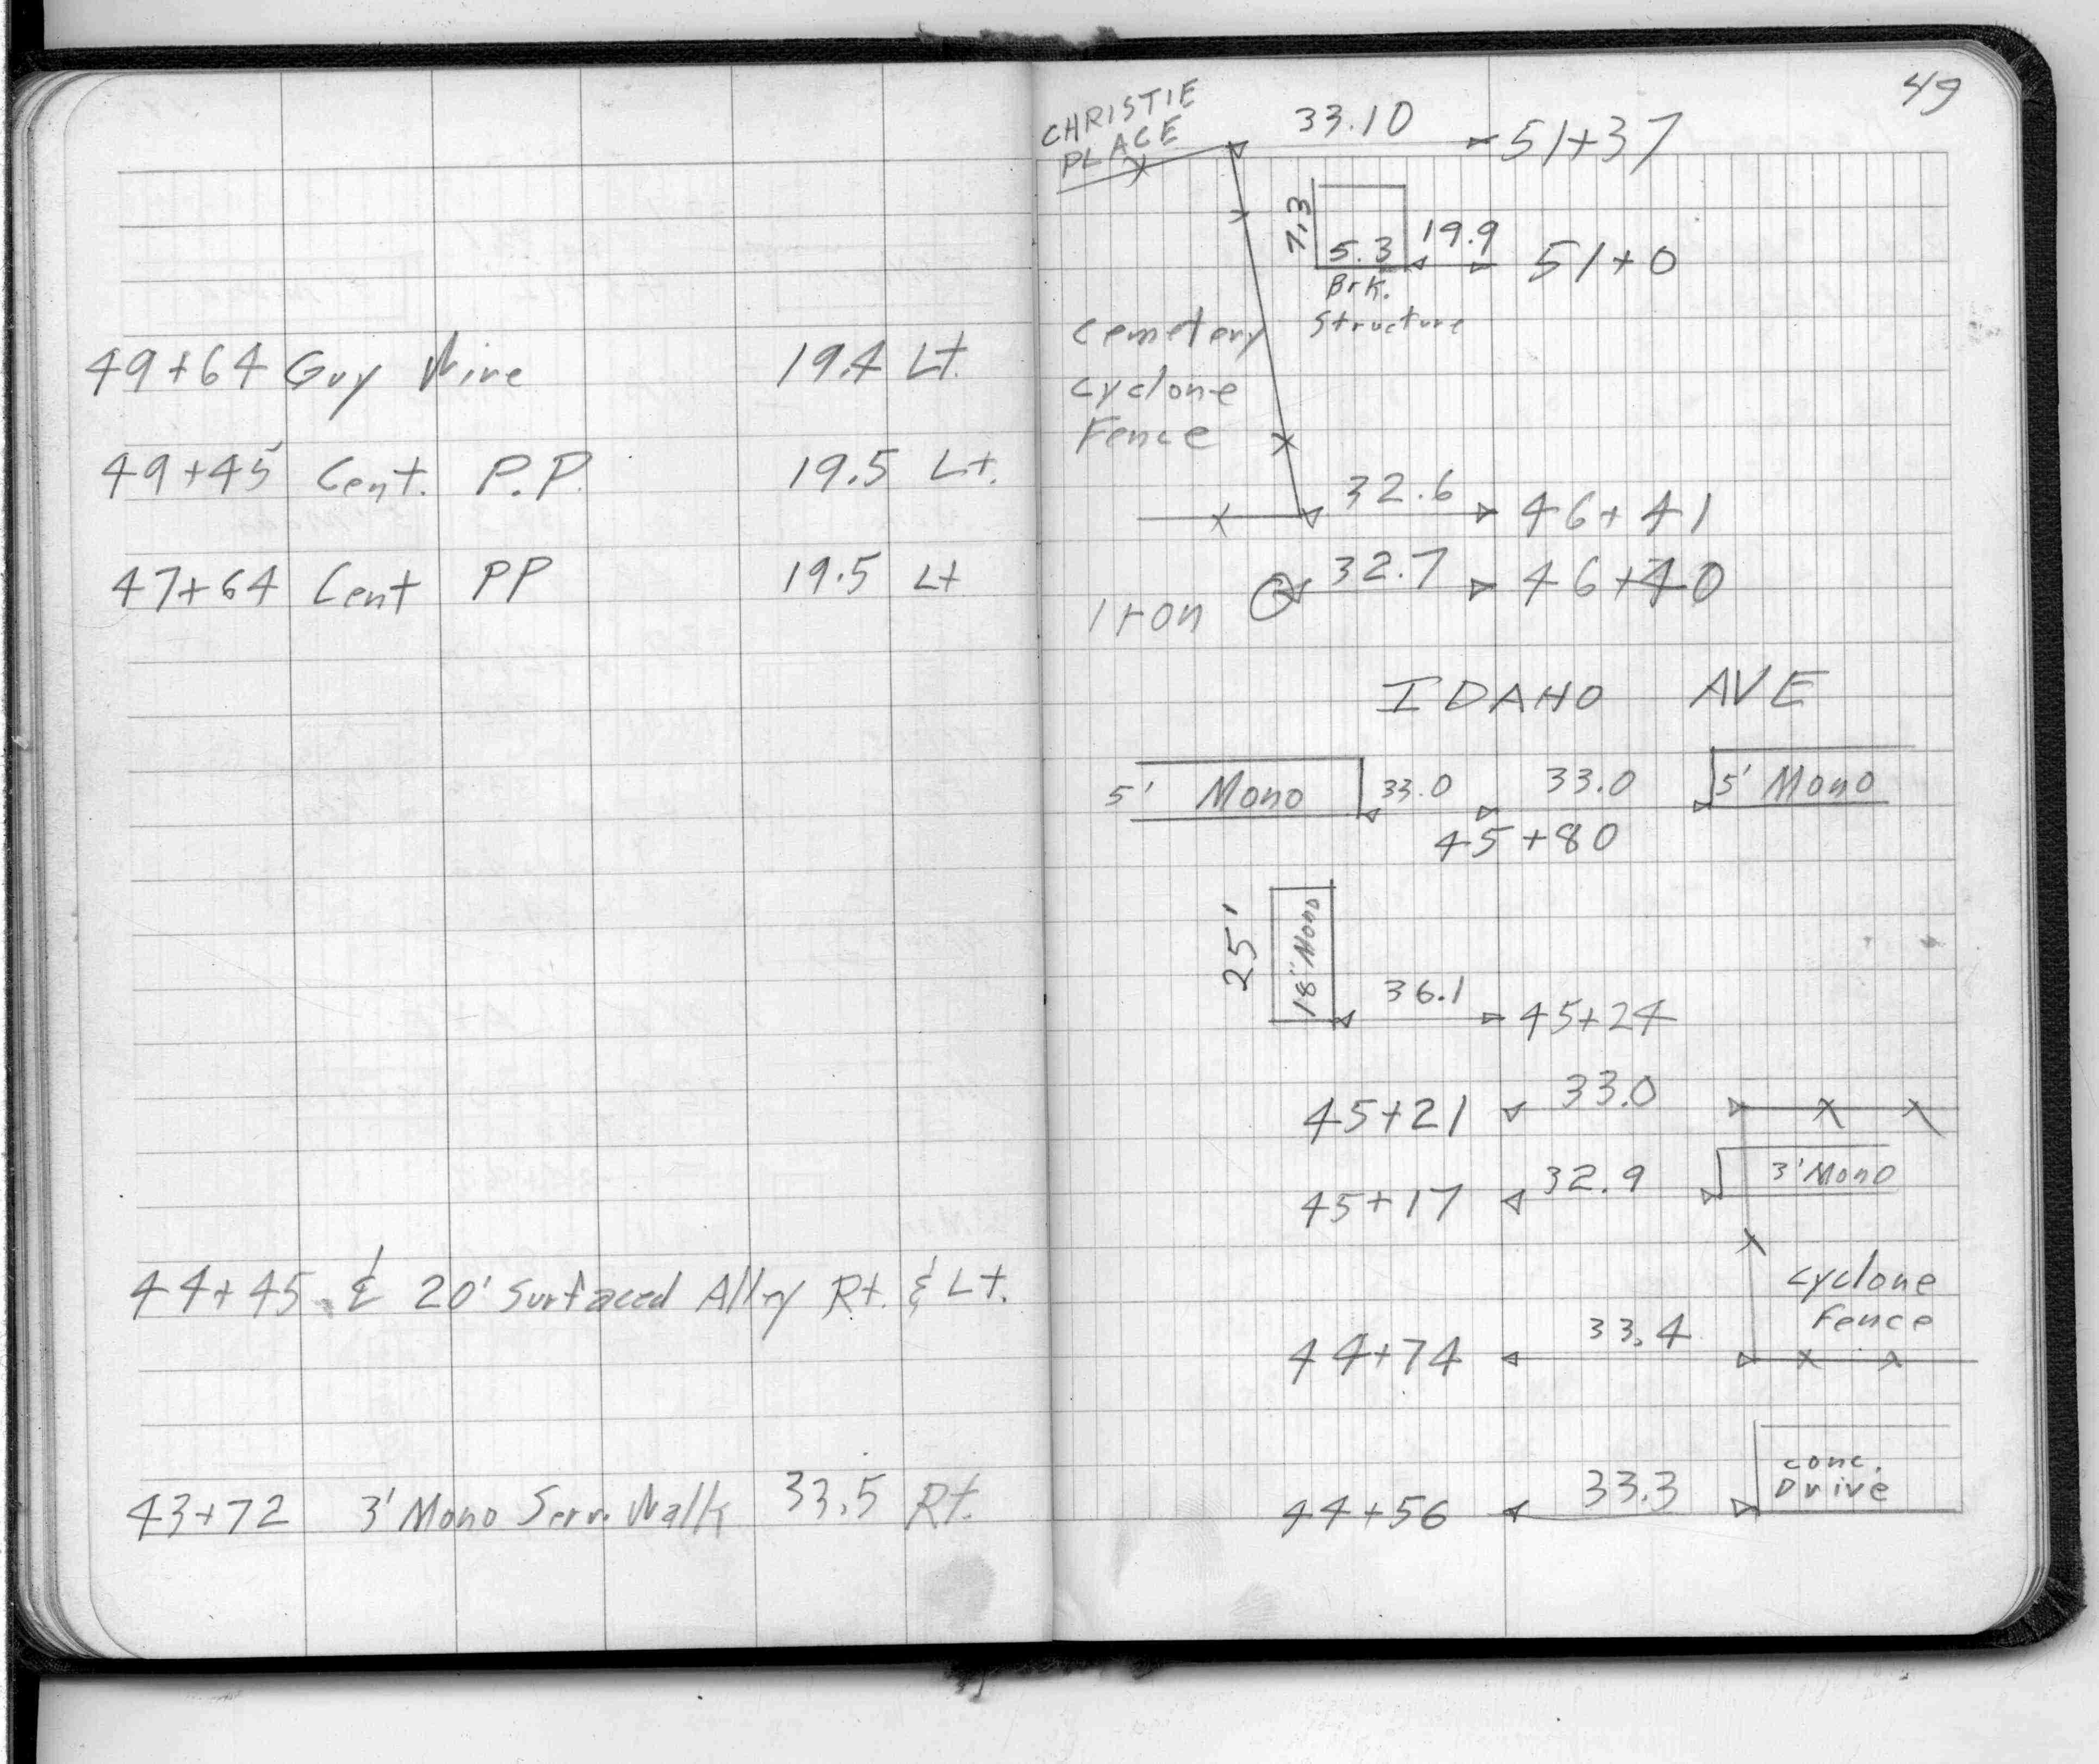 49+64 Guy Wire 19.4 Lt.
49+45 Cent. P.P. 19.5 Lt.
47+64 Cent PP 19.5 Lt
44+45 ℄ 20' Surfaced Alley Rt. & Lt.
43+72 3' Mono Serv. Walk 33.5 Rt.
49
CHRISTIE
PLACE
33.10 51+37
7.3
5.3 19.9 51+0
Brk.
Structure
Cemetery
Cyclone
Fence
32.6 46+41
Iron 32.7 46+40
IDAHO AVE
5' Mono 33.0 33.0 5' Mono
45+80
25' 18" Mono
36.1 45+24
45+21 33.0
45+17 32.9 3' Mono
Cyclone
Fence
44+74 33.4
conc.
Drive
44+56 33.3